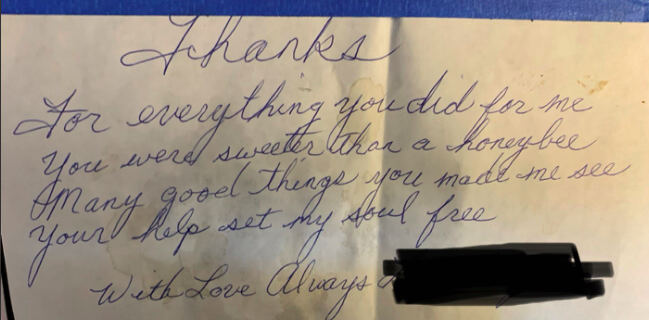 Thanks
For everything you did for me
You were sweeter than a honeybee
Many good things you made me see
Your help set my soul free
With Love Always